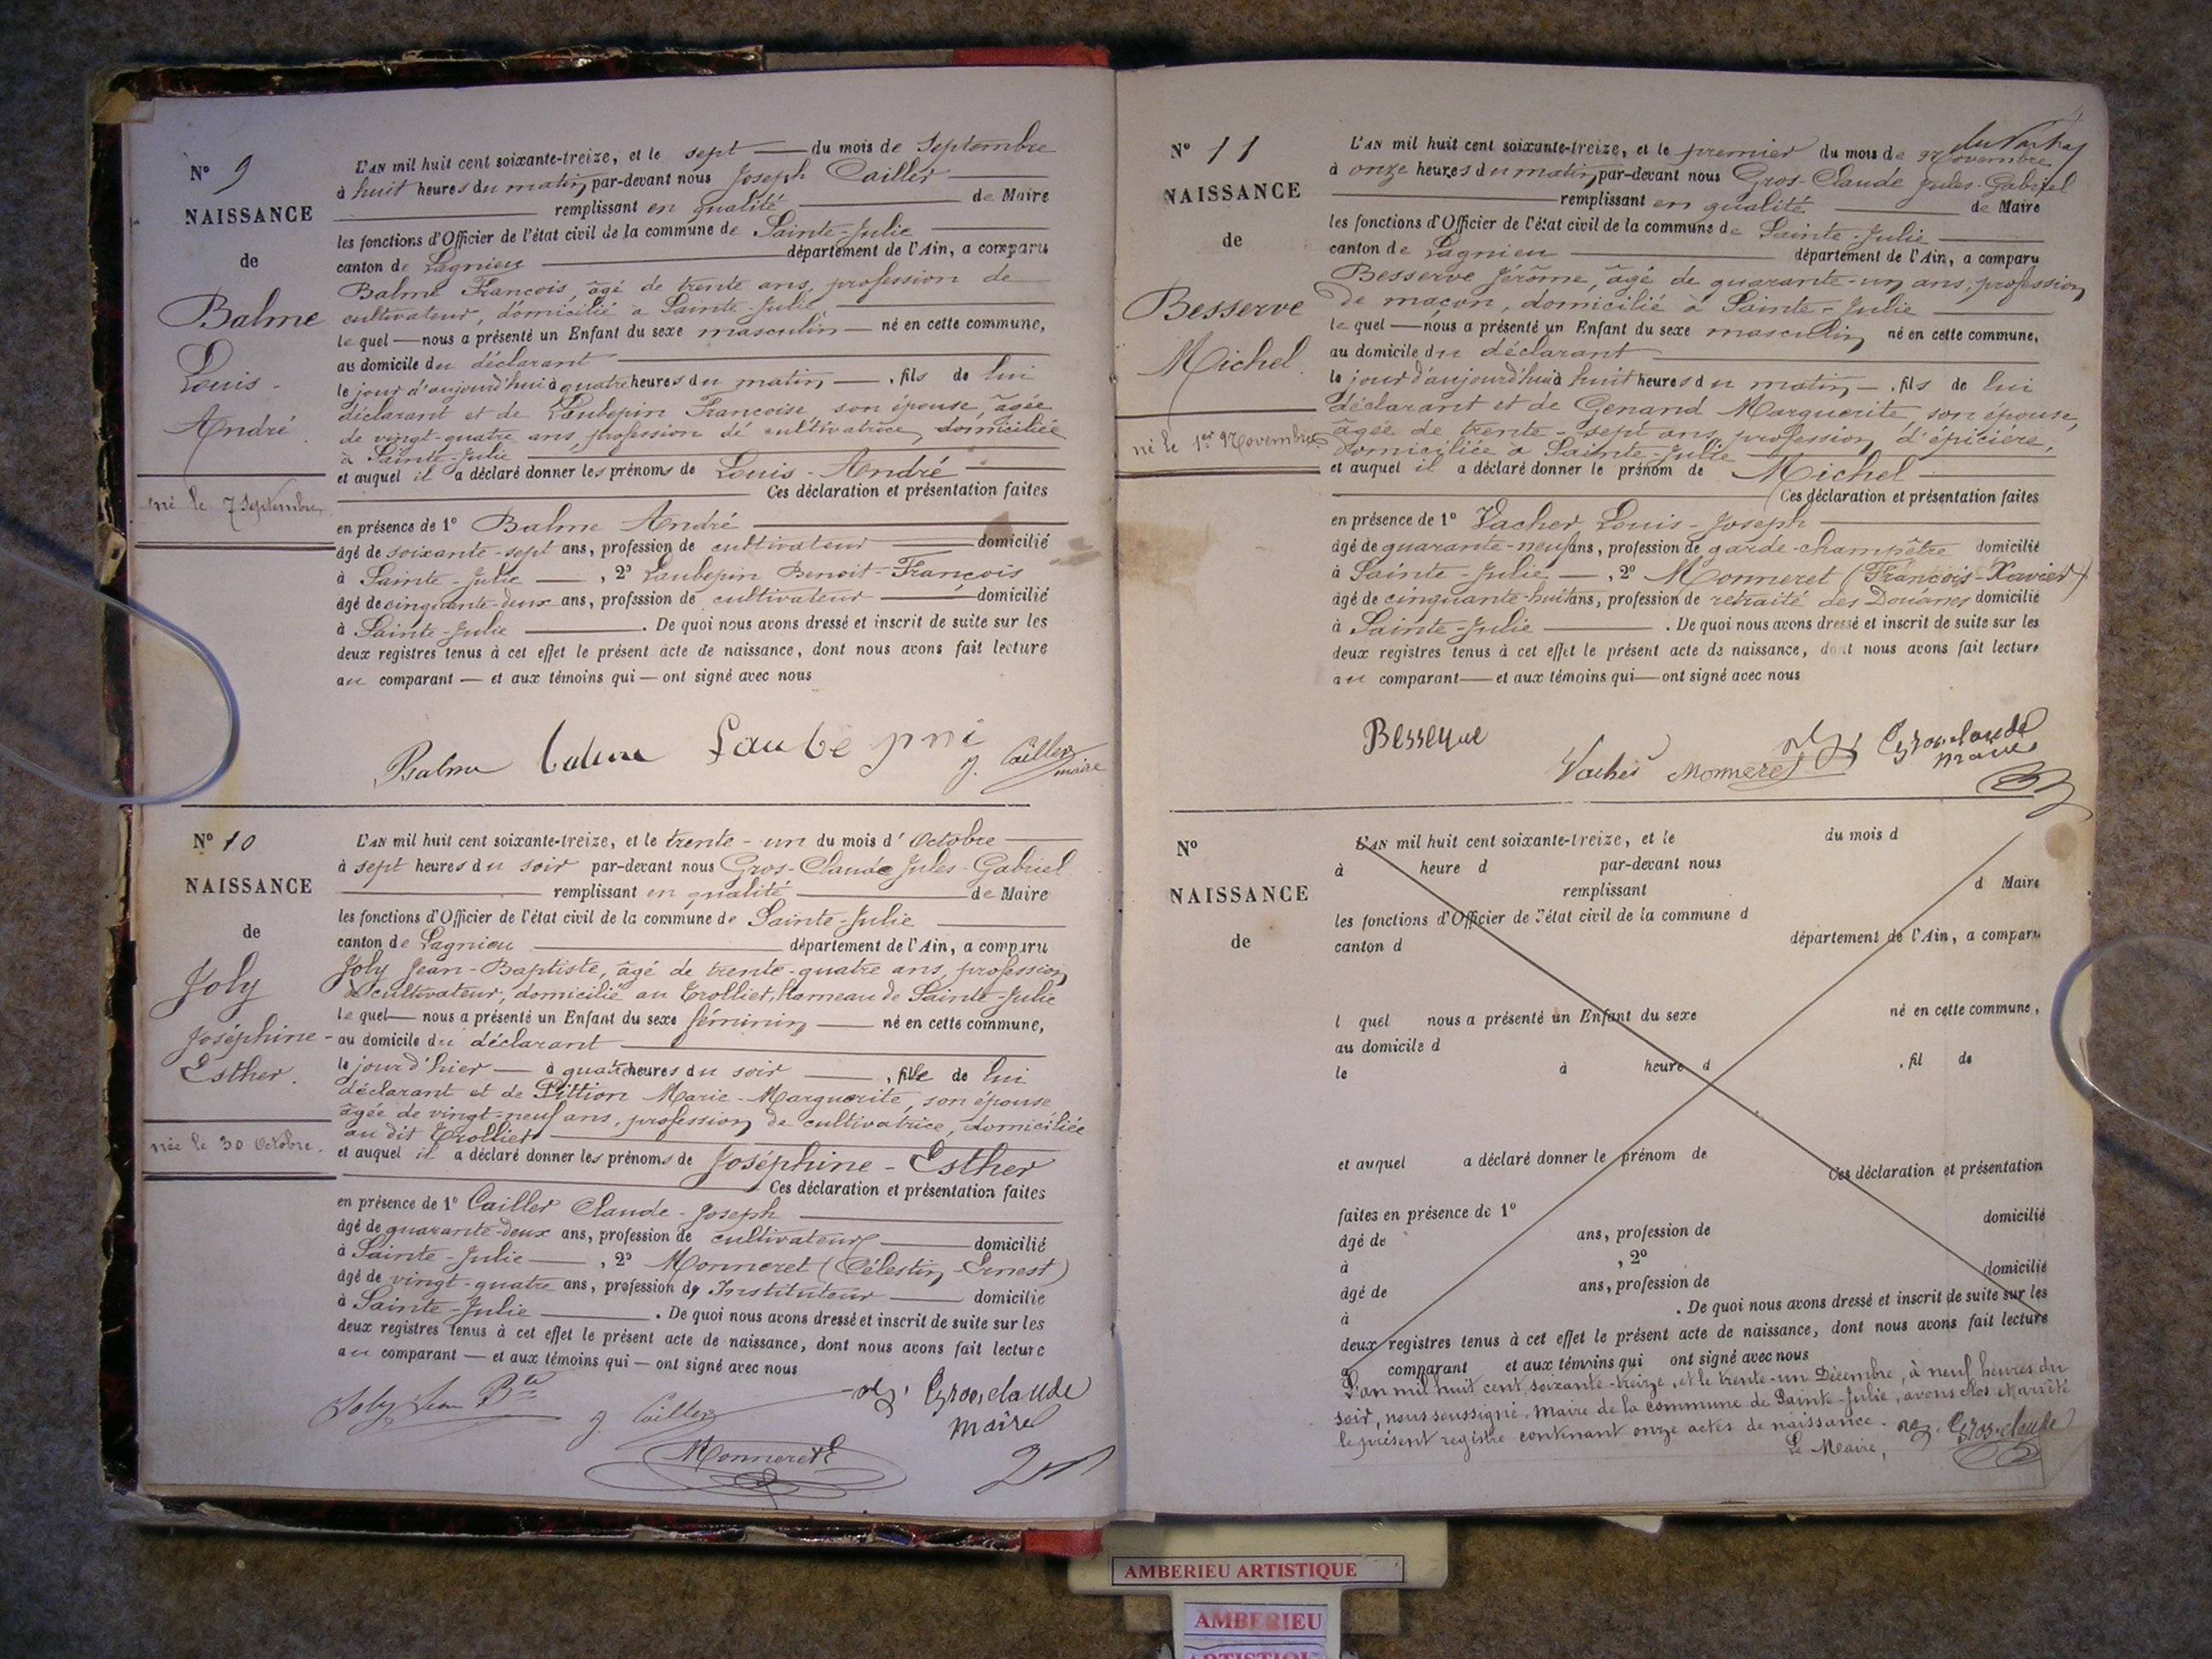 N° 9
NAISSANCE
de
Balme
Louis-
André.
né le 7 Septembre
L'AN mil huit cent soixante-treize, et le sept du mois de Septembre
à huit heures du matin par-devant nous Joseph Cailler
remplissant en qualité de Maire
les fonctions d'Officier de l'état civil de la commune de Sainte-Julie
canton de Lagnieu département de l'Ain, a comparu
Balme François âgé de trente ans, profession de
cultivateur, domicilié à Sainte-Julie
le quel nous a présenté un Enfant du sexe masculin né en cette commune,
au domicile du déclarant
le jour d'aujourd'hui à quatre heures du matin, fils de lui
déclarant et de Laubepin Françoise, son épouse, âgée
de vingt-quatre ans, profession de cultivatrice, domiciliée
à Sainte-Julie
et auquel il a déclaré donner les prénoms de Louis-André
Ces déclaration et présentation faites
en présence de 1° Balme André
âgé de soixante-sept ans, profession de cultivateur domicilié
à Sainte-Julie, 2° Laubepin Benoit-François
âgé de cinquante-deux ans, profession de cultivateur domicilié
à Sainte-Julie. De quoi nous avons dressé et inscrit de suite sur les
deux registres tenus à cet effet le présent acte de naissance, dont nous avons fait lecture
au comparant et aux témoins qui ont signé avec nous
Balme Laubepin J. Cailler
maire
N° 10
NAISSANCE
de
Joly
Joséphine-
Esther.
née le 30 Octobre.
L'AN mil huit cent soixante-treize, et le trente-un du mois d'Octobre
à sept heures du soir par-devant nous Gros-Claude Jules-Gabriel
remplissant en qualité de Maire
les fonctions d'Officier de l'état civil de la commune de Sainte-Julie
canton de Lagnieu département de l'Ain, a comparu
Joly Jean-Baptiste, âgé de trente-quatre ans, profession
de cultivateur, domicilié au Trolliet, hameau de Sainte-Julie
le quel nous a présenté un Enfant du sexe féminin né en cette commune,
au domicile du déclarant
le jour d'hier à quatre heures du soir, fille de lui
déclarant et de Pittion Marie-Marguerite, son épouse
âgée de vingt-neuf ans, profession de cultivatrice, domiciliée
au dit Trolliet
et auquel il a déclaré donner les prénoms de Joséphine-Esther
Ces déclaration et présentation faites
en présence de 1° Cailler Claude-Joseph
âgé de quarante-deux ans, profession de cultivateur domicilié
à Sainte-Julie, 2° Monneret (Célestin-Ernest)
âgé de vingt-quatre ans, profession d'Instituteur domicilié
à Sainte-Julie. De quoi nous avons dressé et inscrit de suite sur les
deux registres tenus à cet effet le présent acte de naissance, dont nous avons fait lecture
au comparant et aux témoins qui ont signé avec nous
Joly Jean Bte J. Cailler Gros, claude
maire
Monneret E
N° 11
NAISSANCE
de
Besserve
Michel.
né le 1er Novembre
L'AN mil huit cent soixante-treize, et le premier du mois de Novembre
à onze heures du matin par-devant nous Gros-Claude Jules-Gabriel
remplissant en qualité de Maire
les fonctions d'Officier de l'état civil de la commune de Sainte-Julie
canton de Lagnieu département de l'Ain, a comparu
Besserve Jérôme, âgé de quarante-un ans, profession
de maçon, domicilié à Sainte-Julie
le quel nous a présenté un Enfant du sexe masculin né en cette commune,
au domicile du déclarant
le jour d'aujourd'hui à huit heures du matin, fils de lui
déclarant et de Genand Marguerite, son épouse,
âgée de trente-sept ans, profession d'épicière,
domiciliée à Sainte-Julie
et auquel il a déclaré donner le prénom de Michel
Ces déclaration et présentation faites
en présence de 1° Vacher Louis-Joseph
âgé de quarante-neuf ans, profession de garde-champêtre domicilié
à Sainte-Julie, 2° Monneret (François-Xavier)
âgé de cinquante-huit ans, profession de retraité des Douanes domicilié
à Sainte-Julie. De quoi nous avons dressé et inscrit de suite sur les
deux registres tenus à cet effet le présent acte de naissance, dont nous avons fait lecture
au comparant et aux témoins qui ont signé avec nous
Monneret Gros, claude
maire
N°
NAISSANCE
de
L'AN mil huit cent soixante-treize, et le du mois d
à heure d par-devant nous
remplissant d Maire
les fonctions d'Officier de l'état civil de la commune d
canton d département de l'Ain, a comparu
l quel nous a présenté un Enfant du sexe né en cette commune,
au domicile d
le à heure d , fil de
et auquel a déclaré donner le prénom de
Ces déclaration et présentation
faites en présence de 1°
âgé de ans, profession de domicilié
à , 2°
âgé de ans, profession de domicilié
à . De quoi nous avons dressé et inscrit de suite sur les
deux registres tenus à cet effet le présent acte de naissance, dont nous avons fait lecture
a comparant et aux témoins qui ont signé avec nous
L'an mil huit cent soixante-treize, et le trente-un Décembre, à neuf heures du
soir, nous soussigné, Maire de la commune de Sainte-Julie, avons clos et arrêté
le présent registre contenant onze actes de naissance. Gros-claude
Le Maire,
AMBERIEU ARTISTIQUE
AMBERIEU
ARTISTIQU